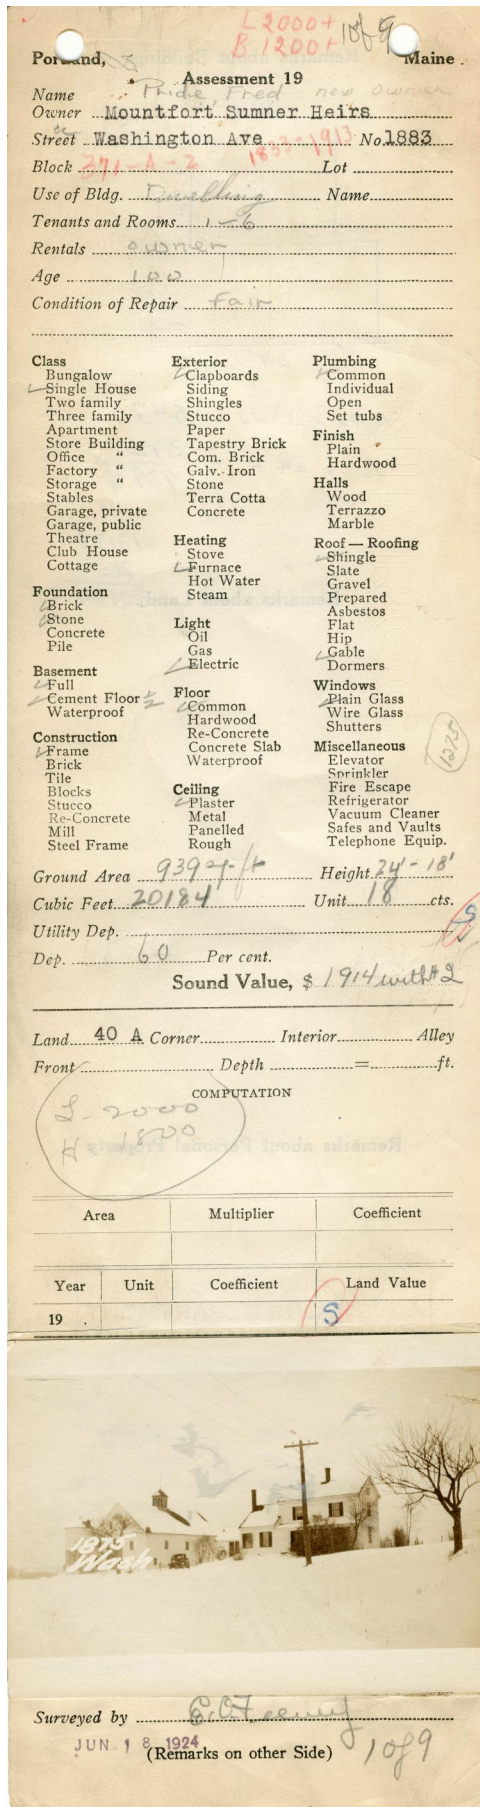 L 2000+
B 1200+
1 of 9
Portland, Maine.
Assessment 19
Name Pride, Fred new owner
Owner Mountfort Sumner Heirs
Street Washington Ave No. 1883
1833-1913
Block 371-A-2 Lot
Use of Bldg. Dwelling Name
Tenants and Rooms 1-6
Rentals owner
Age 100
Condition of Repair fair
Class
Bungalow
Single House
Two family
Three family
Apartment
Store Building
Office "
Factory "
Storage "
Stables
Garage, private
Garage, public
Theatre
Club House
Cottage
Foundation
Brick
Stone
Concrete
Pile
Basement
Full
Cement Floor ½
Waterproof
Construction
Frame
Brick
Tile
Blocks
Stucco
Re-Concrete
Mill
Steel Frame
Exterior
Clapboards
Siding
Shingles
Stucco
Paper
Tapestry Brick
Com. Brick
Galv. Iron
Stone
Terra Cotta
Concrete
Heating
Stove
Furnace
Hot Water
Steam
Light
Oil
Gas
Electric
Floor
Common
Hardwood
Re-Concrete
Concrete Slab
Waterproof
Ceiling
Plaster
Metal
Panelled
Rough
Plumbing
Common
Individual
Open
Set tubs
Finish
Plain
Hardwood
Halls
Wood
Terrazzo
Marble
Roof — Roofing
Shingle
Slate
Gravel
Prepared
Asbestos
Flat
Hip
Gable
Dormers
Windows
Plain Glass
Wire Glass
Shutters
Miscellaneous
Elevator
Sprinkler
Fire Escape
Refrigerator
Vacuum Cleaner
Safes and Vaults
Telephone Equip.
1275
Ground Area 939 sq ft Height 24'-18'
Cubic Feet 20184 Unit 18 cts.
S
Utility Dep.
Dep. 60 Per cent.
Sound Value, $ 1914 with #2
Land 40 A Corner Interior Alley
Front Depth = ft.
COMPUTATION
L-2000
H 1800
Area Multiplier Coefficient
Year Unit Coefficient Land Value
19 . S
1875
Wash
Surveyed by E.O. Feeney
JUN 18 1924
(Remarks on other Side) 1 of 9